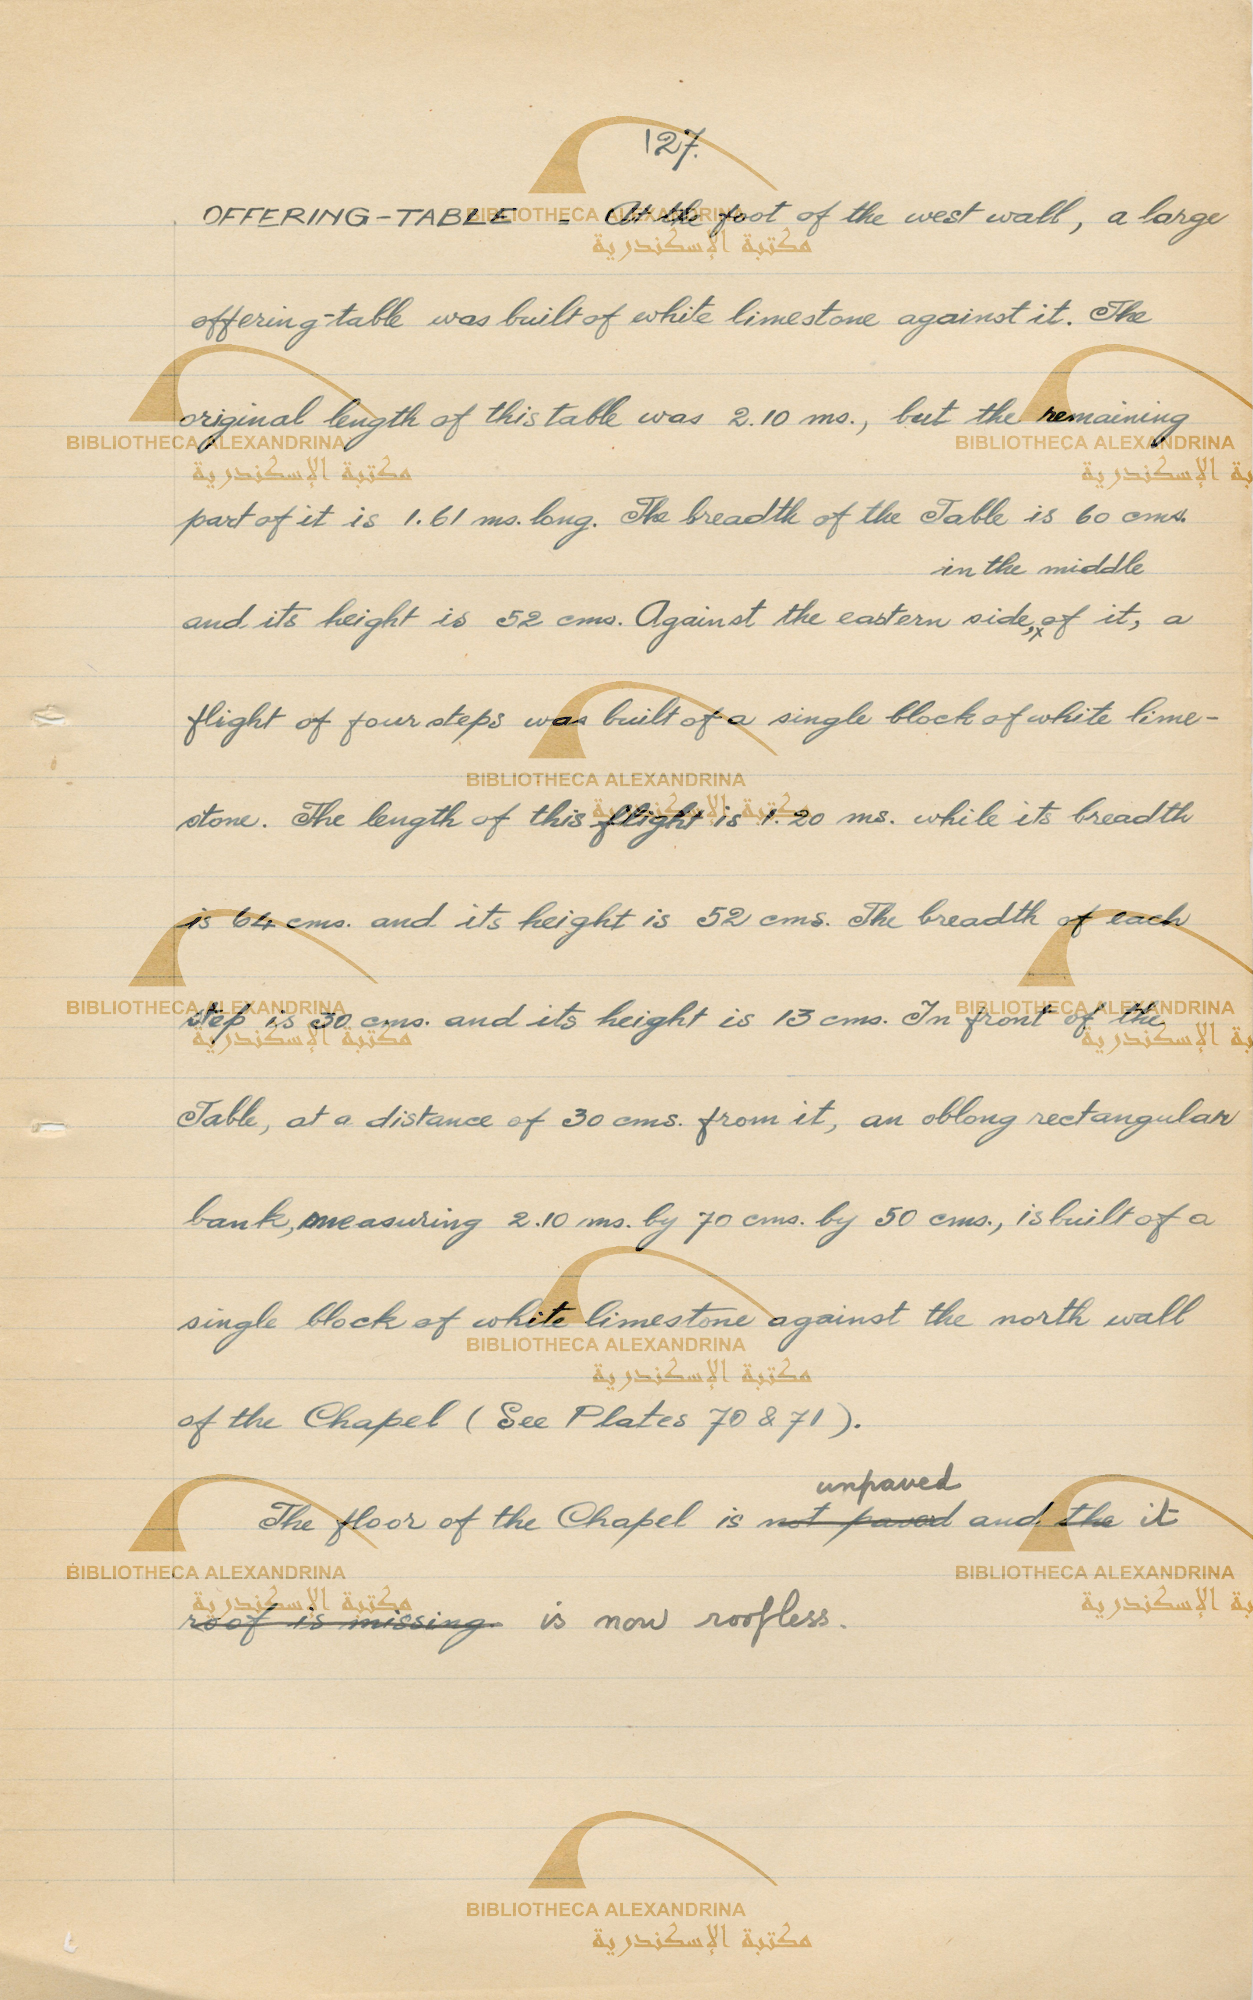 127.
OFFERING-TABLE = At the foot of the west wall, a large
offering-table was built of white limestone against it. The
original length of this table was 2.10 ms., but the remaining
part of it is 1.61 ms. long. The breadth of the Table is 60 cms.
in the middle
and its height is 52 cms. Against the eastern side, x of it, a
flight of four steps was built of a single block of white lime-
stone. The length of this flight is 1.20 ms. while its breadth
is 64 cms. and its height is 52 cms. The breadth of each
step is 30 cms. and its height is 13 cms. In front of the
Table, at a distance of 30 cms. from it, an oblong rectangular
bank, measuring 2.10 ms. by 70 cms. by 50 cms., is built of a
single block of white limestone against the north wall
of the Chapel (See Plates 70 & 71).
unpaved
The floor of the Chapel is not paved and the it
roof is missing. is now roofless.
BIBLIOTHECA ALEXANDRINA
مكتبة الإسكندرية